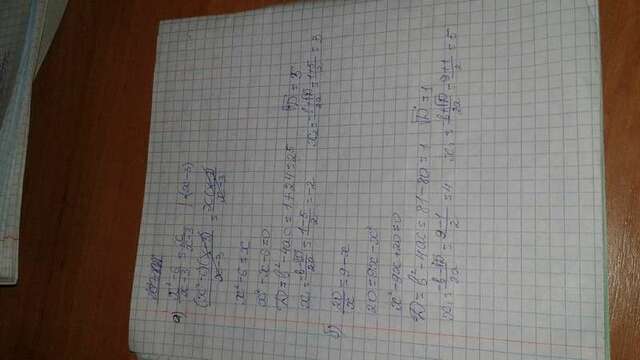 а) (x²-6)/(x-3) = x/(x-3) | ·(x-3)
((x²-6)(x-3))/(x-3) = (x(x-3))/(x-3)
x²-6=x
x²-x-6=0
D=b²-4ac=1+24=25 √D=5
x₁=(-b-√D)/2a=(1-5)/2=-2 x₂=(-b+√D)/2a=(1+5)/2=3
б) 20/x=9-x
20=9x-x²
x²-9x+20=0
D=b²-4ac=81-80=1 √D=1
x₁=(-b-√D)/2a=(9-1)/2=4 x₂=(-b+√D)/2a=(9+1)/2=5